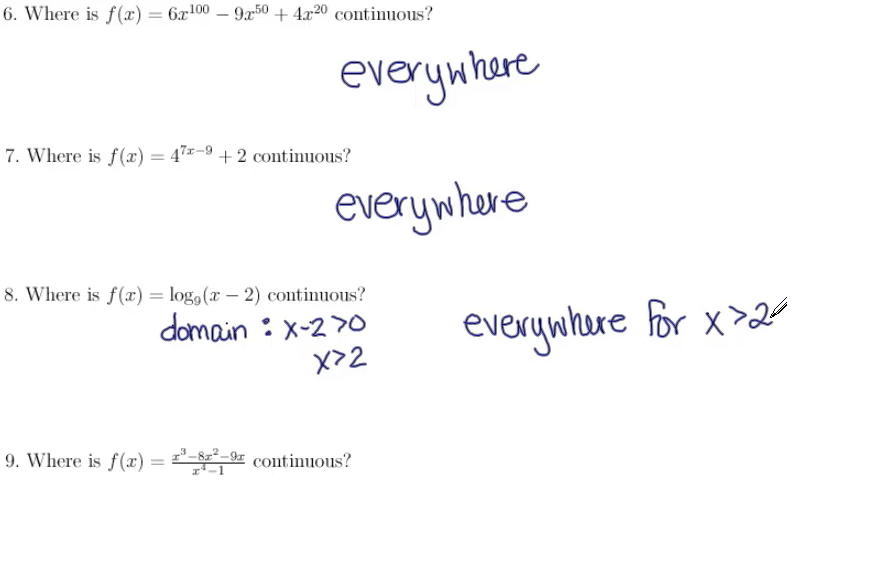 6. Where is f(x) = 6x¹⁰⁰ − 9x⁵⁰ + 4x²⁰ continuous?
everywhere
7. Where is f(x) = 4⁷ˣ⁻⁹ + 2 continuous?
everywhere
8. Where is f(x) = log₉(x − 2) continuous?
domain : x-2>0
x>2
everywhere for x>2
9. Where is f(x) = (x³−8x²−9x)/(x⁴−1) continuous?